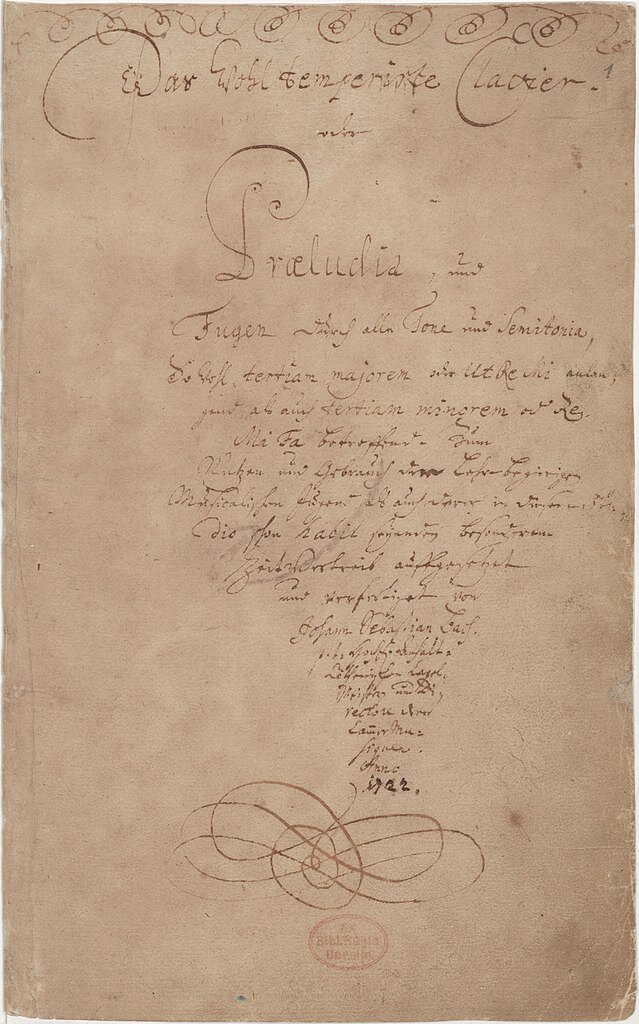 Das Wohltemperirte Clavier.
1
oder
Præludia, und
Fugen durch alle Tone und Semitonia,
So wohl tertiam majorem oder Ut Re Mi anlan,
gend, als auch tertiam minorem oder Re
Mi Fa betreffend. Zum
Nutzen und Gebrauch der Lehr-begierigen
Musicalischen Jugend als auch derer in diesem stu-
dio schon habil seyenden besonderem
ZeitVertreib auffgesetzet
und verfertiget von
Johann Sebastian Bach.
p. t. HochF. Anhalt-
Cöthenischen Capel-
Meistern und Di-
rectore derer
Cammer Mu-
siquen.
Anno
1722.
Ex
Bibl. Regia